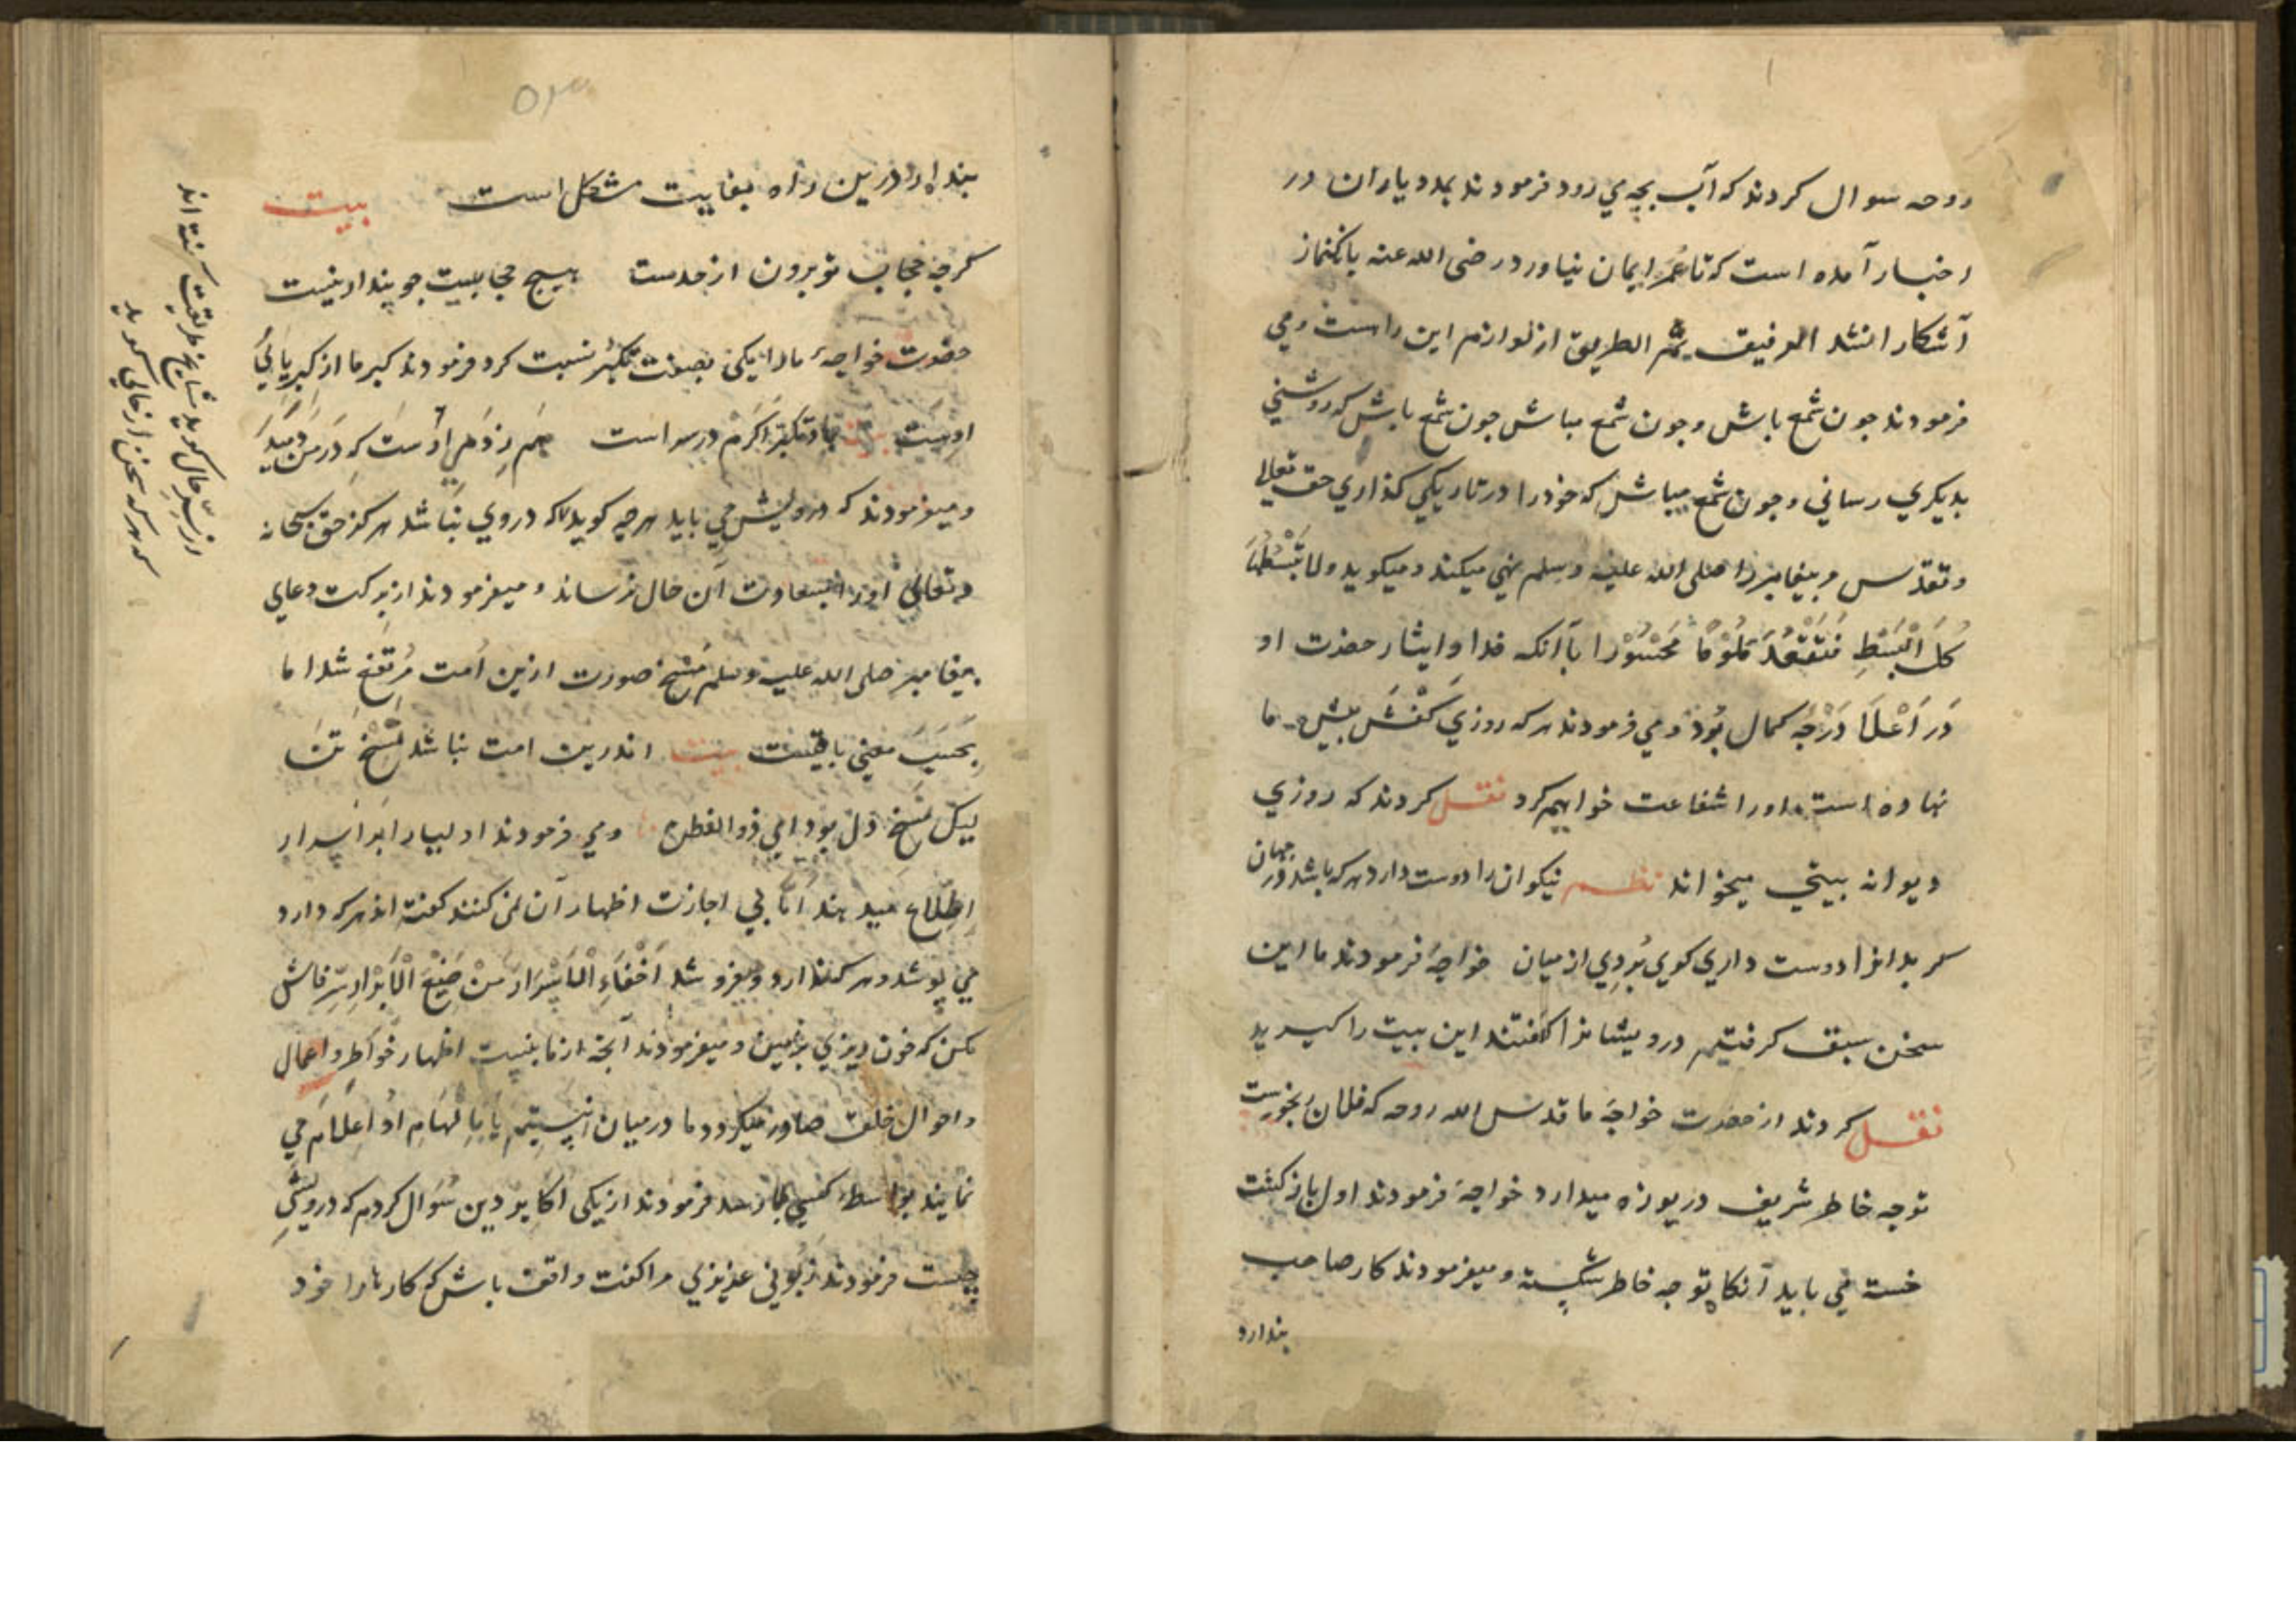 روحه سوال کردند که آب بچه می رود فرمودند بمدد یاران در
اخبار آمده است که تا عُمَر ایمان نیاورد رضی الله عنه بانک نماز
آشکارا نشد الرفیق ثم الطریق از لوازم این راست و می
فرمودند چون شمع باش و چون شمع مباش چون شمع باش که روشنی
بدیکری رسانی و چون شمع مباش که خود را در تاریکی کذاری حق تعالی
و تقدس مر پیغامبر را صلی الله علیه و سلم نهی میکند و میکوید ولا تَبْسُطْهَا
کُلَّ الْبَسْطِ فَتَقْعُدَ مَلُوْمًا مَحْسُوْرا با آنکه فدا و ایثار حضرت او
دَر اَعْلَا دَرَجَه کمال بُوَد و می فرمودند هر که روزی کَفْش پیش ما
نهاده است اورا شفاعت خواهیم کرد نقل کردند که روزی
دیوانه بیتی میخواند نظم نیکوان را دوست دارد هر که باشد در جهان
کر بدانرا دوست داری کوی بُردِی از میان خواجه فرمودند ما این
سخن سبق کرفتیم درویشانرا کفتند این بیت را کیرید
نقل کردند از حضرت خواجه ما قدس الله روحه که فلان رنجورست
توجه خاطر شریف دریوزه میدارد خواجه فرمودند اول بازکشت
خسته می باید آنکاه توجه خاطر شکسته و میفرمودند کار صاحب
پندارد
پندار درین راه بغایت مشکل است بیت
کرچه حجاب تو برون از حدست هیچ حجابیت چو پندار نیست
حضرت خواجه ما را یکی بصفت تکبّر نسبت کرد فرمودند کبر ما از کبریائی
اوست
و میفرمودند که درویش می باید هرچه کوید که در وی نباشد هرکز حق سبحانه
و تعالی اورا بسعادت آن حال نرساند و میفرمودند از برکت دعای
پیغامبر صلی الله علیه وسلم مَسْخ صورت ازین اُمت مُرتَفِع شد اما
بِحَسَبِ معنی باقیست بیت اندرین امت نباشد مَسْخ تَن
لیک مَسْخِ دل بود ای ذو الفطن و می فرمودند اولیا را بر اسرار
اِطِّلاع میدهند اَمّا بی اجازت اظهار آن نمی کنند کفته اند هرکه دارد
می پوشد و هر که ندارد میفروشد اَخْفَاءِ الْاَسْرَار مِنْ صَنِیْعِ الْاَبْرَار سِرّ فاش
مکن که خون ریزی بزمین و میفرمودند آنچه از ما بنسبت اظهار خَواطِر و اعمال
و احوال خلق صادر میکردد ما در میان نیستیم یا بِاِلْهَامِ او اعلام می
نمایند بواسطه کسی می رسد فرمودند از یکی اکابر دین سُوَال کردم که درویشیِ
چیست فرمودند زبونی عزیزی مرا کفت واقف باش که کارها را خود
از سِرّ حال کوید مشایخ طریقت کفته اند
که هرکه سخن از حالی کوید